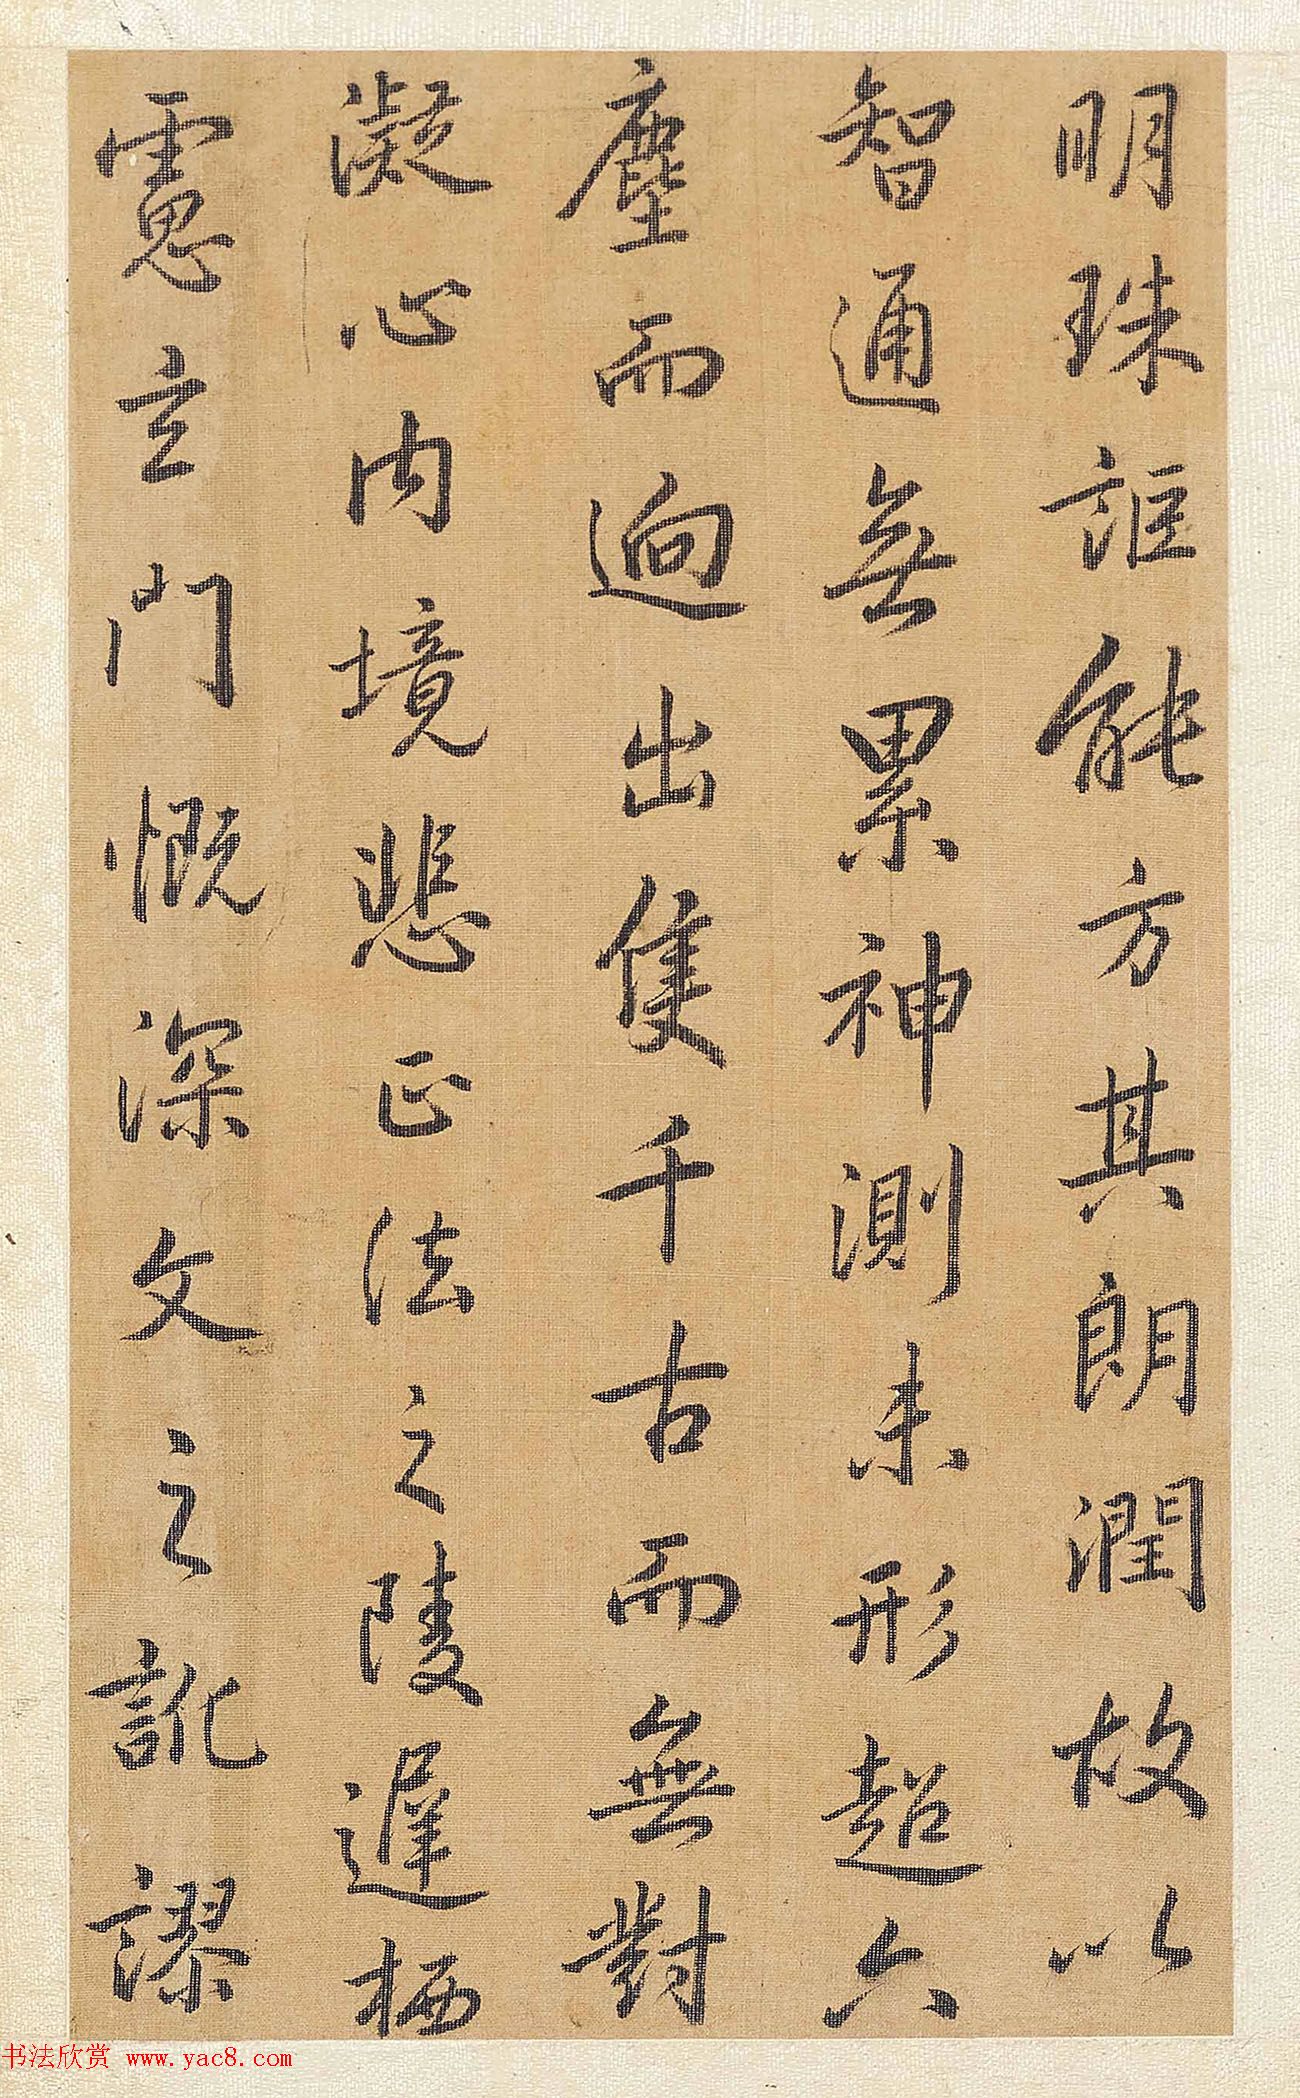 明珠詎能方其朗潤故以
智通無累神測未形超六
塵而迥出隻千古而無對
凝心內境悲正法之陵遲栖
慮玄門慨深文之訛謬
书法欣赏 www.yac8.com